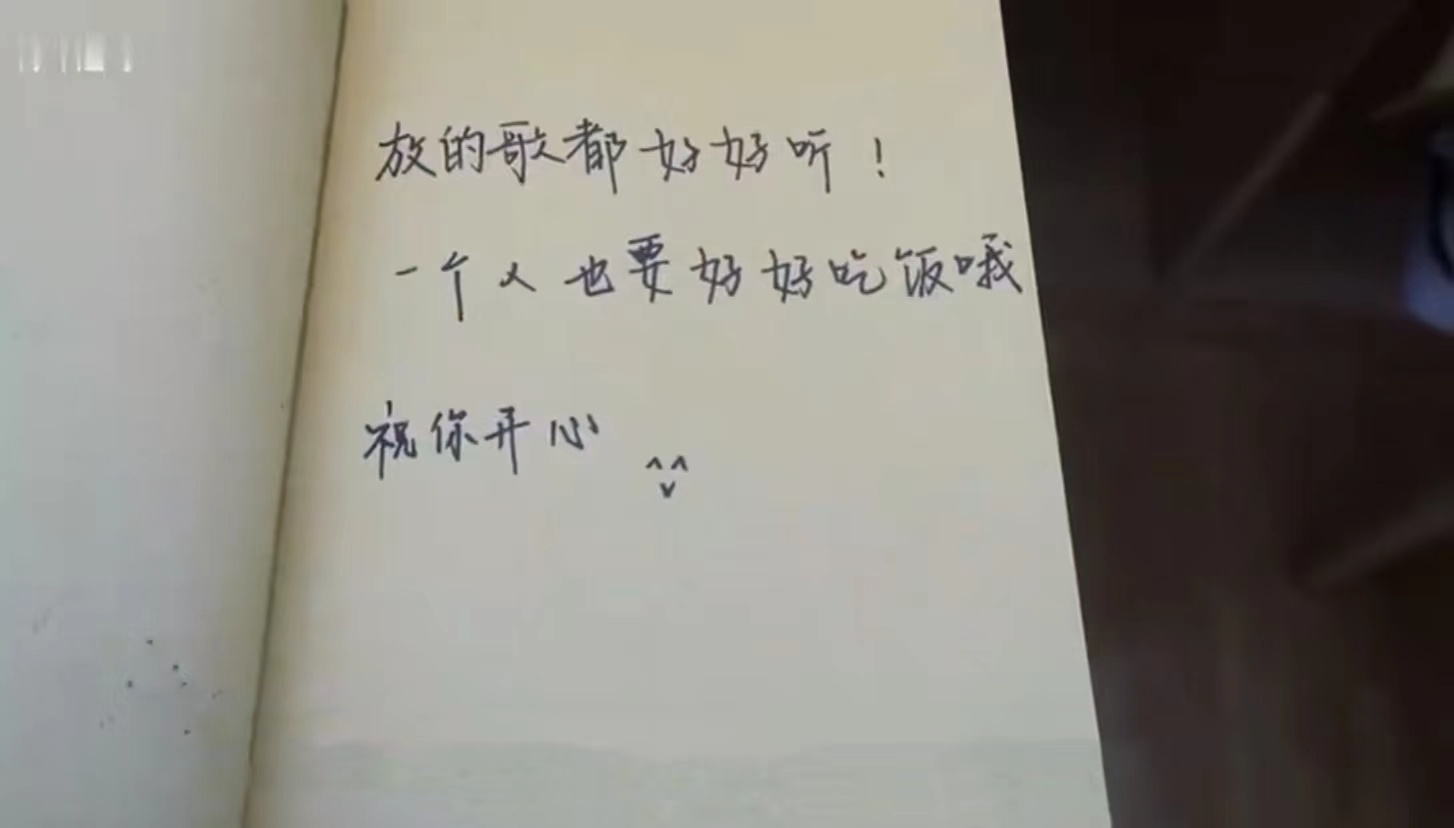 放的歌都好好听！
一个人也要好好吃饭哦
祝你开心 ^^